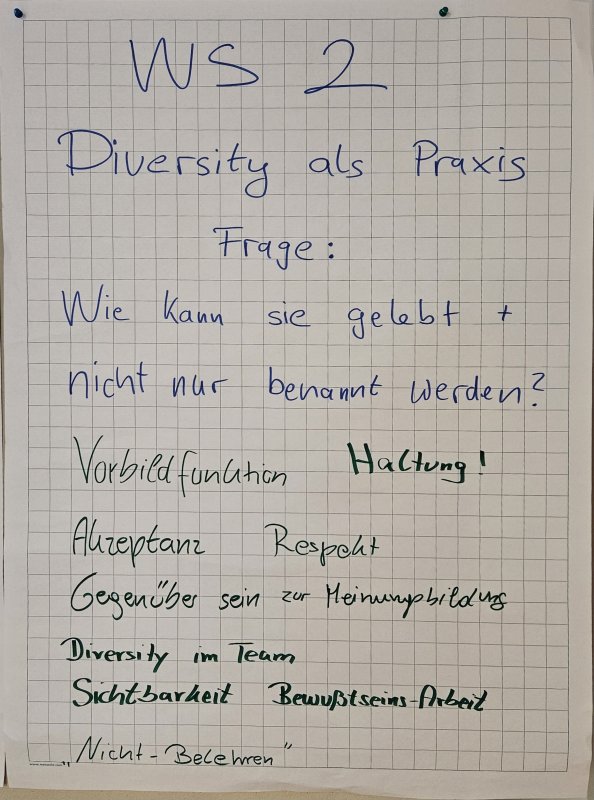 WS 2
Diversity als Praxis
Frage:
Wie kann sie gelebt +
nicht nur benannt werden?
Vorbildfunktion Haltung!
Akzeptanz Respekt
Gegenüber sein zur Meinungsbildung
Diversity im Team
Sichtbarkeit Bewußtseins-Arbeit
„Nicht-Belehren"